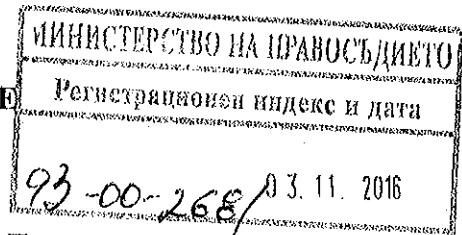 МИНИСТЕРСТВО НА ПРАВОСЪДИЕТО
Е Регистрационен индекс и дата
93-00-268/03.11.2016